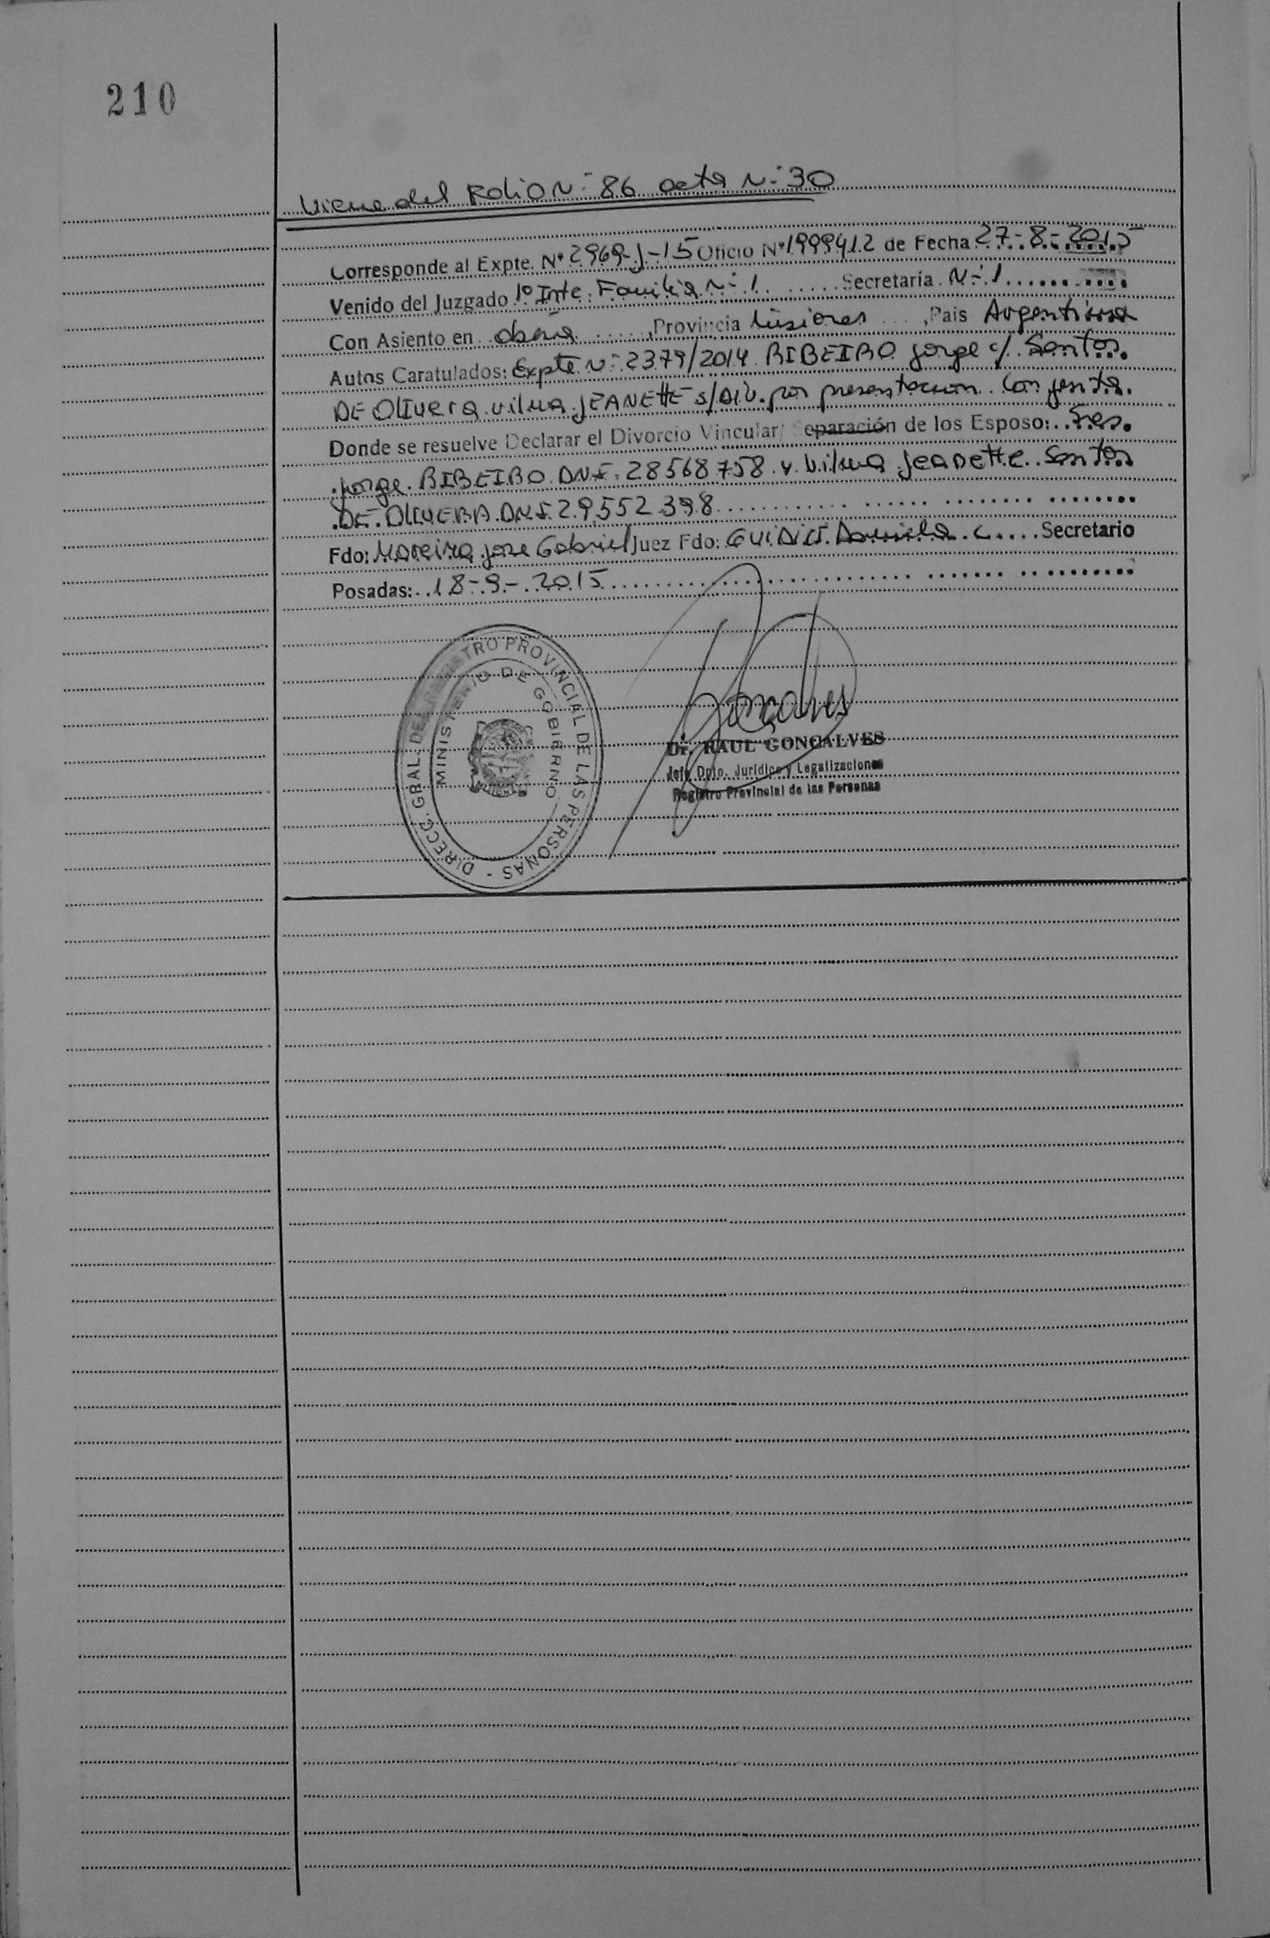 210
Viene del Folio N: 86 acta N: 30
Corresponde al Expte. Nº 2969-J-15 Oficio Nº 1999412 de Fecha 27-8-2015
Venido del Juzgado 1º Inte. Familia N: 1 Secretaría N: 1
Con Asiento en Oberá, Provincia Misiones, Pais Argentina
Autos Caratulados: Expte N: 2379/2014 RIBEIRO Jorge c/ Santos
DE OLIVERA Vilma JEANETTE s/Div. por presentacion Conjunta.
Donde se resuelve Declarar el Divorcio Vincular/ Separación de los Esposo: Sres.
Jorge RIBEIRO DNI. 28568758 y Vilma Jeanette Santos
DE OLIVERA DNI. 29.552.398
Fdo: Moreira Jose Gabriel Juez Fdo: GUIDICI Daniela C. Secretario
Posadas: 18-9-2015
DIRECC. GRAL. DEL REGISTRO PROVINCIAL DE LAS PERSONAS -
MINISTERIO DE GOBIERNO
Goncalves
Dr. RAUL GONCALVES
Jefe Dpto. Jurídico y Legalizaciones
Registro Provincial de las Personas